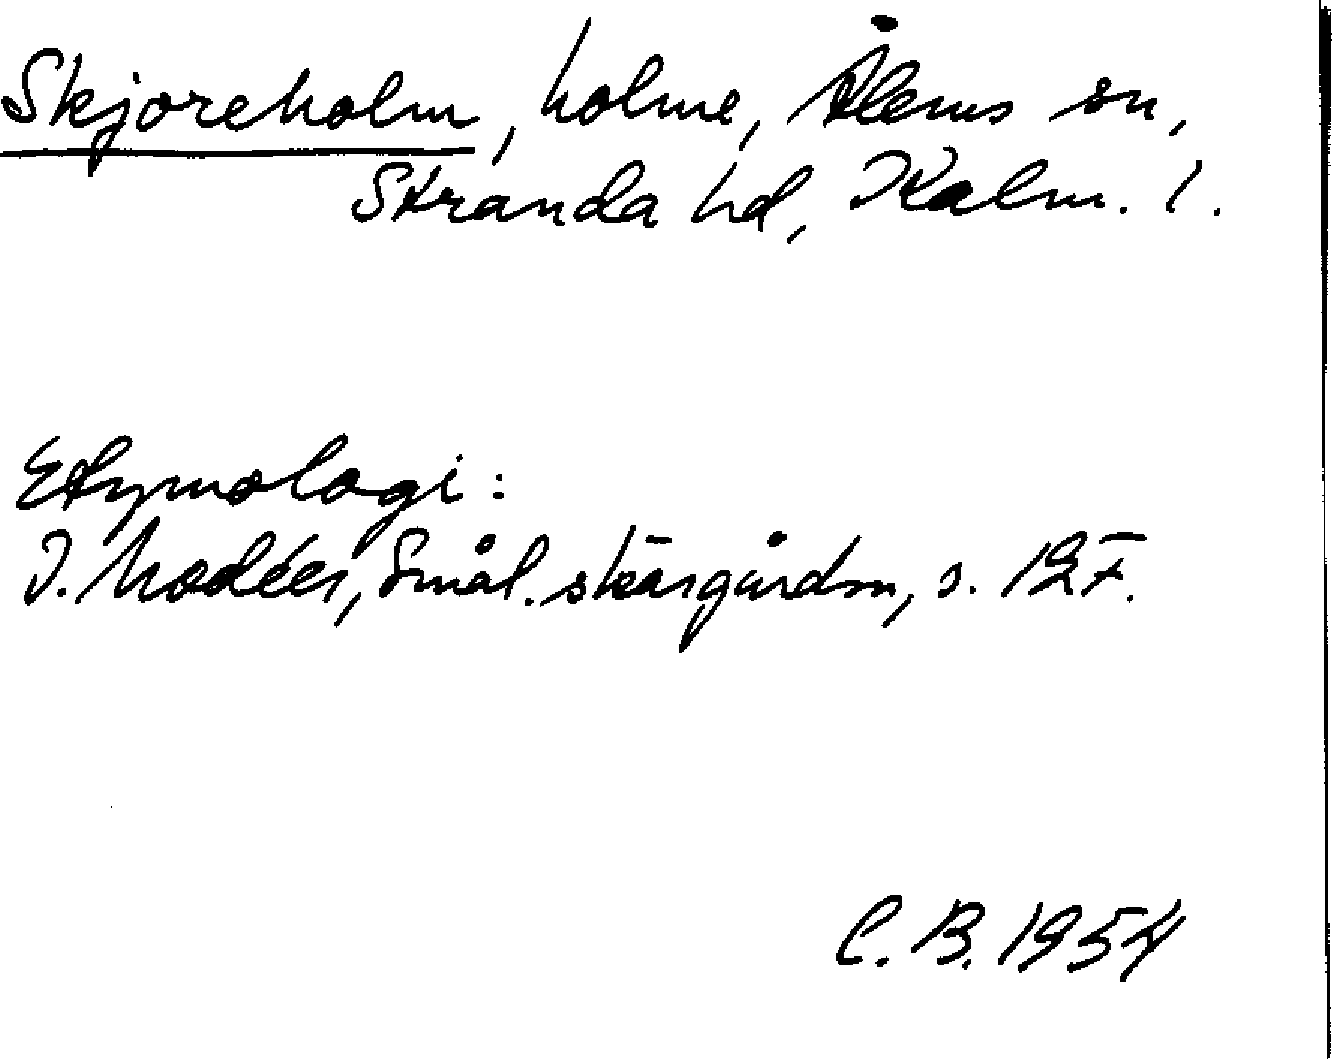 Skjoreholm, holme, Ålems sn,
Stranda hd, Kalm. l.
Etymologi:
I. Modéer, Smål. skärgårdsn, s. 127.
C. B. 1954